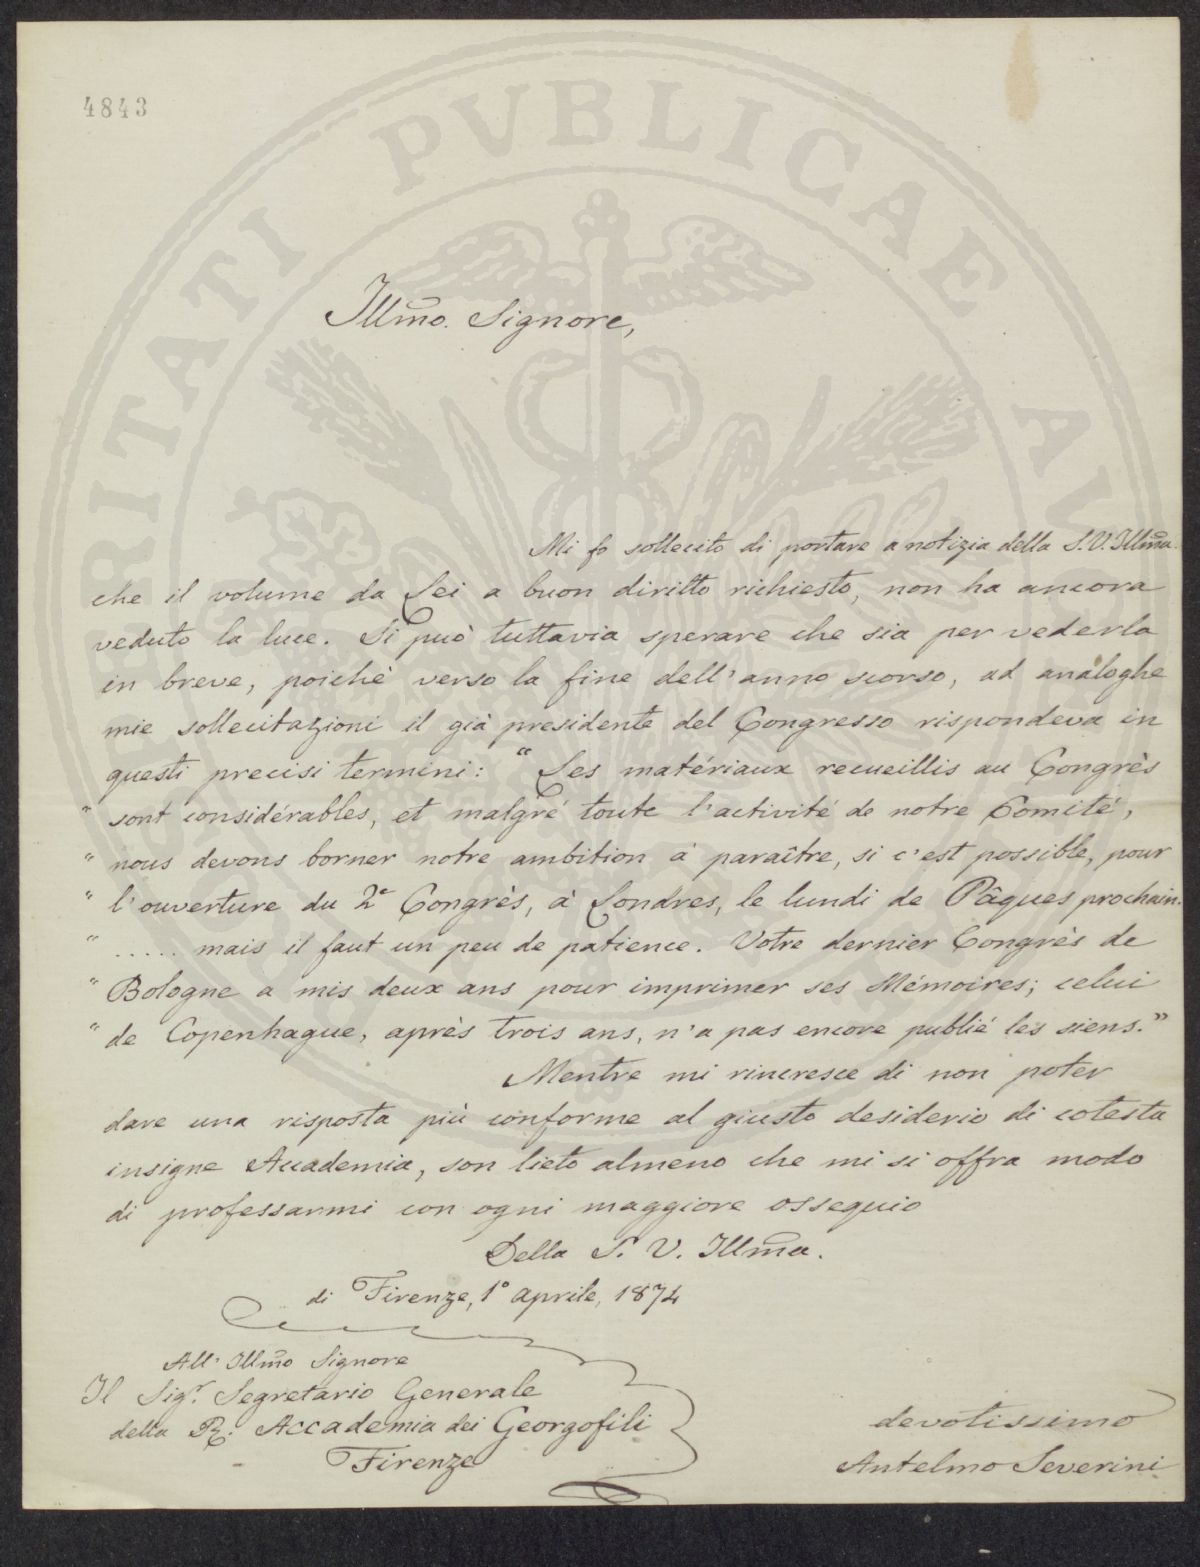 4843
PROSPERITATI PVBLICAE AVGENDAE
Illm̅o. Signore,
Mi fo sollecito di portare a notizia della S. V. Illm̅a.
che il volume da Lei a buon diritto richiesto, non ha ancora
veduto la luce. Si può tuttavia sperare che sia per vederla
in breve, poichè verso la fine dell'anno scorso, ad analoghe
mie sollecitazioni il già presidente del Congresso rispondeva in
questi precisi termini: “Les matériaux recueillis au Congrès
“ sont considérables, et malgré toute l'activité de notre Comité,
“ nous devons borner notre ambition à paraître, si c'est possible, pour
“ l'ouverture du 2e Congrès, à Londres, le lundi de Pâques prochain.
“ ..... mais il faut un peu de patience. Votre dernier Congrès de
“ Bologne a mis deux ans pour imprimer ses Mémoires; celui
“ de Copenhague, après trois ans, n'a pas encore publié les siens.”
Mentre mi rincresce di non poter
dare una risposta più conforme al giusto desiderio di cotesta
insigne Accademia, son lieto almeno che mi si offra modo
di professarmi con ogni maggiore ossequio
Della S. V. Illm̅a.
di Firenze, 1° aprile, 1874
All' Illm̅o Signore
Il Sigr. Segretario Generale
della R. Accademia dei Georgofili
Firenze
devotissimo
Antelmo Severini